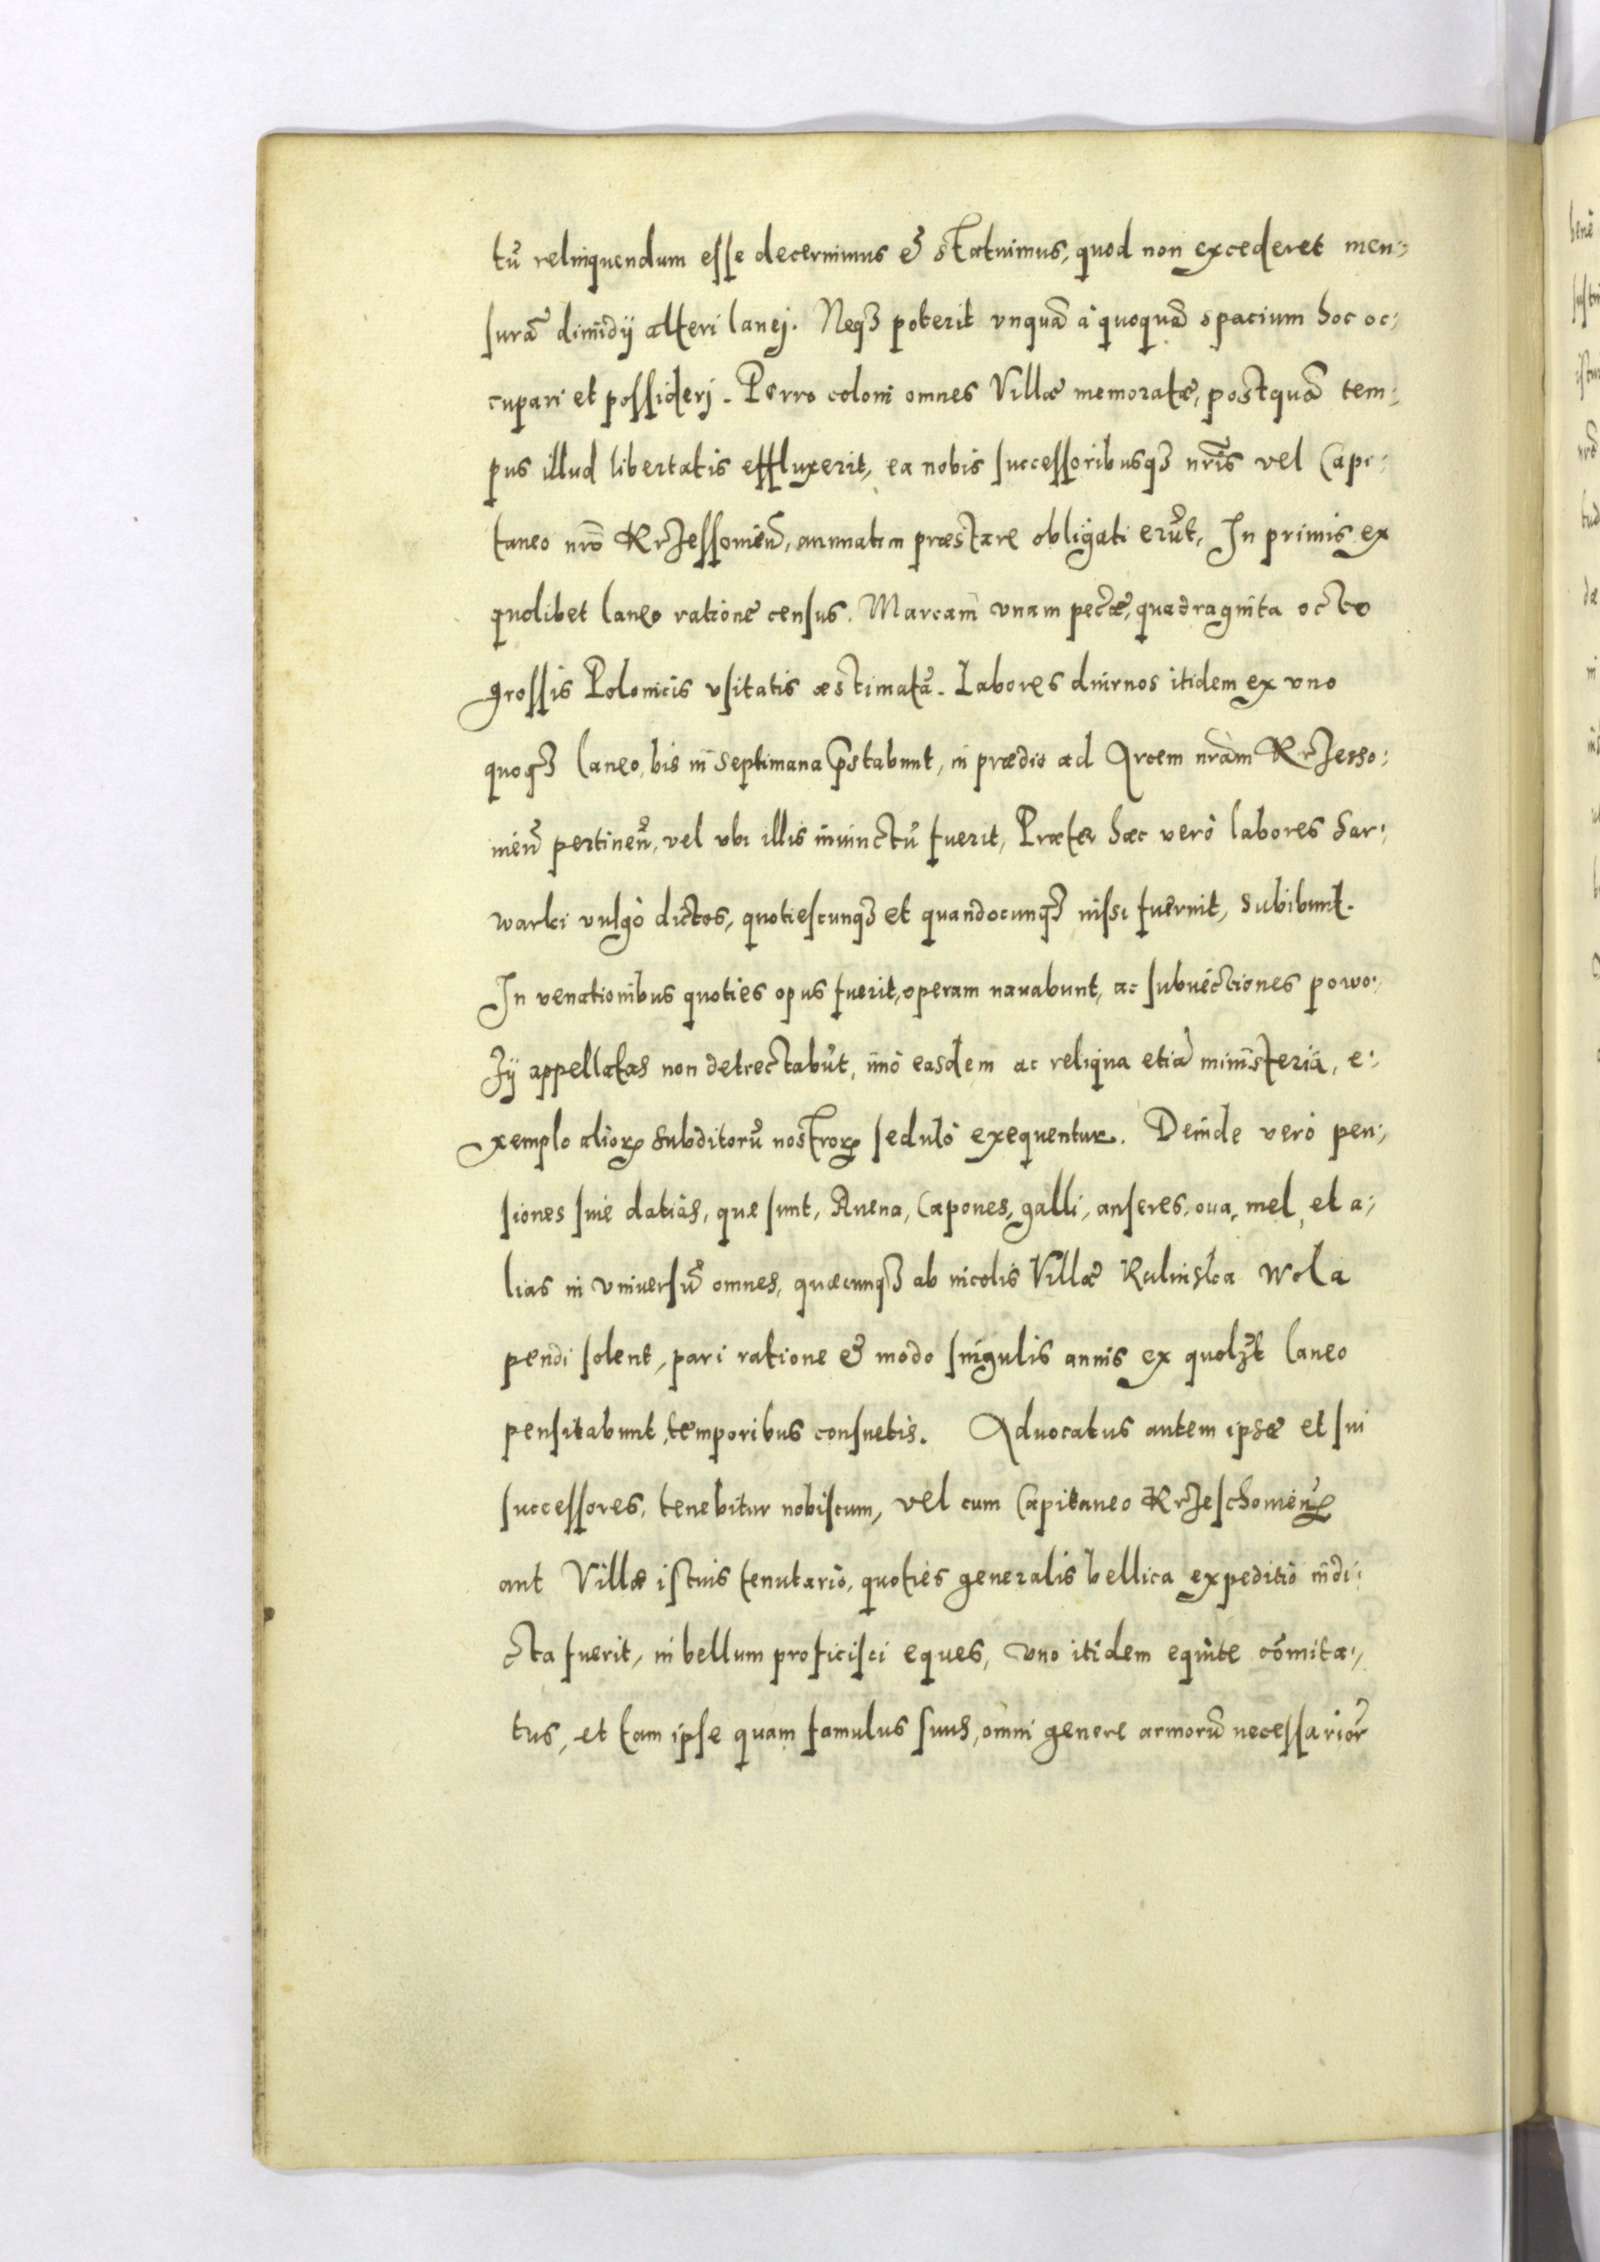 tũ relinquendum esse decernimus & statuimus, quod non excederet men:
surã dimidij alteri lanej. Neqꝫ poterit vnquã à quoquã spacium hoc oc:
cupari et possiderj. Porro coloni omnes Villæ memoratæ, postquã tem:
pus illud libertatis effluxerit, ea nobis successoribusqꝫ nr̃is vel Capi:
taneo nrõ Krzessouien̄, annuatim præstare obligati erũt. In primis ex
quolibet laneo ratione census. Marcam vnam pec̃æ, quadraginta octo
grossis Polonicis vsitatis æstimatã. Labores diurnos itidem ex vno
quoqꝫ laneo, bis in septimana p̃stabunt, in prædio ad Arcem nrãm Krzesso:
uien̄ pertinen̄, vel vbi illis iniunctũ fuerit, Præter hæc verò labores Sar:
warki vulgò dictos, quotiescunqꝫ et quandocunqꝫ iussi fuerint, subibunt.
In venationibus quoties opus fuerit, operam nauabunt, ac subuectiones powo:
zÿ appellatas non detrectabũt, imò easdem ac reliqua etiã ministeria, e:
xemplo alioꝝ subditorũ nostroꝝ sedulò exequentur. Deinde verò pen:
siones siue datias, quæ sunt, Auena, Capones, galli, anseres, oua, mel, et a:
lias in vniuersũ omnes, quæcunqꝫ ab incolis Villæ Rulinska Wola
pendi solent, pari ratione & modo singulis annis ex quolꝫt laneo
pensitabunt, temporibus consuetis. Aduocatus autem ipse et sui
successores, tenebitur nobiscum, vel cum Capitaneo Krzeschouien̄
aut Villæ istius tenutario, quoties generalis bellica expeditio indi:
cta fuerit, in bellum proficisci eques, vno itidem equite cõmita:
tus, et tam ipse quam famulus suus, omni genere armorũ necessarior̃